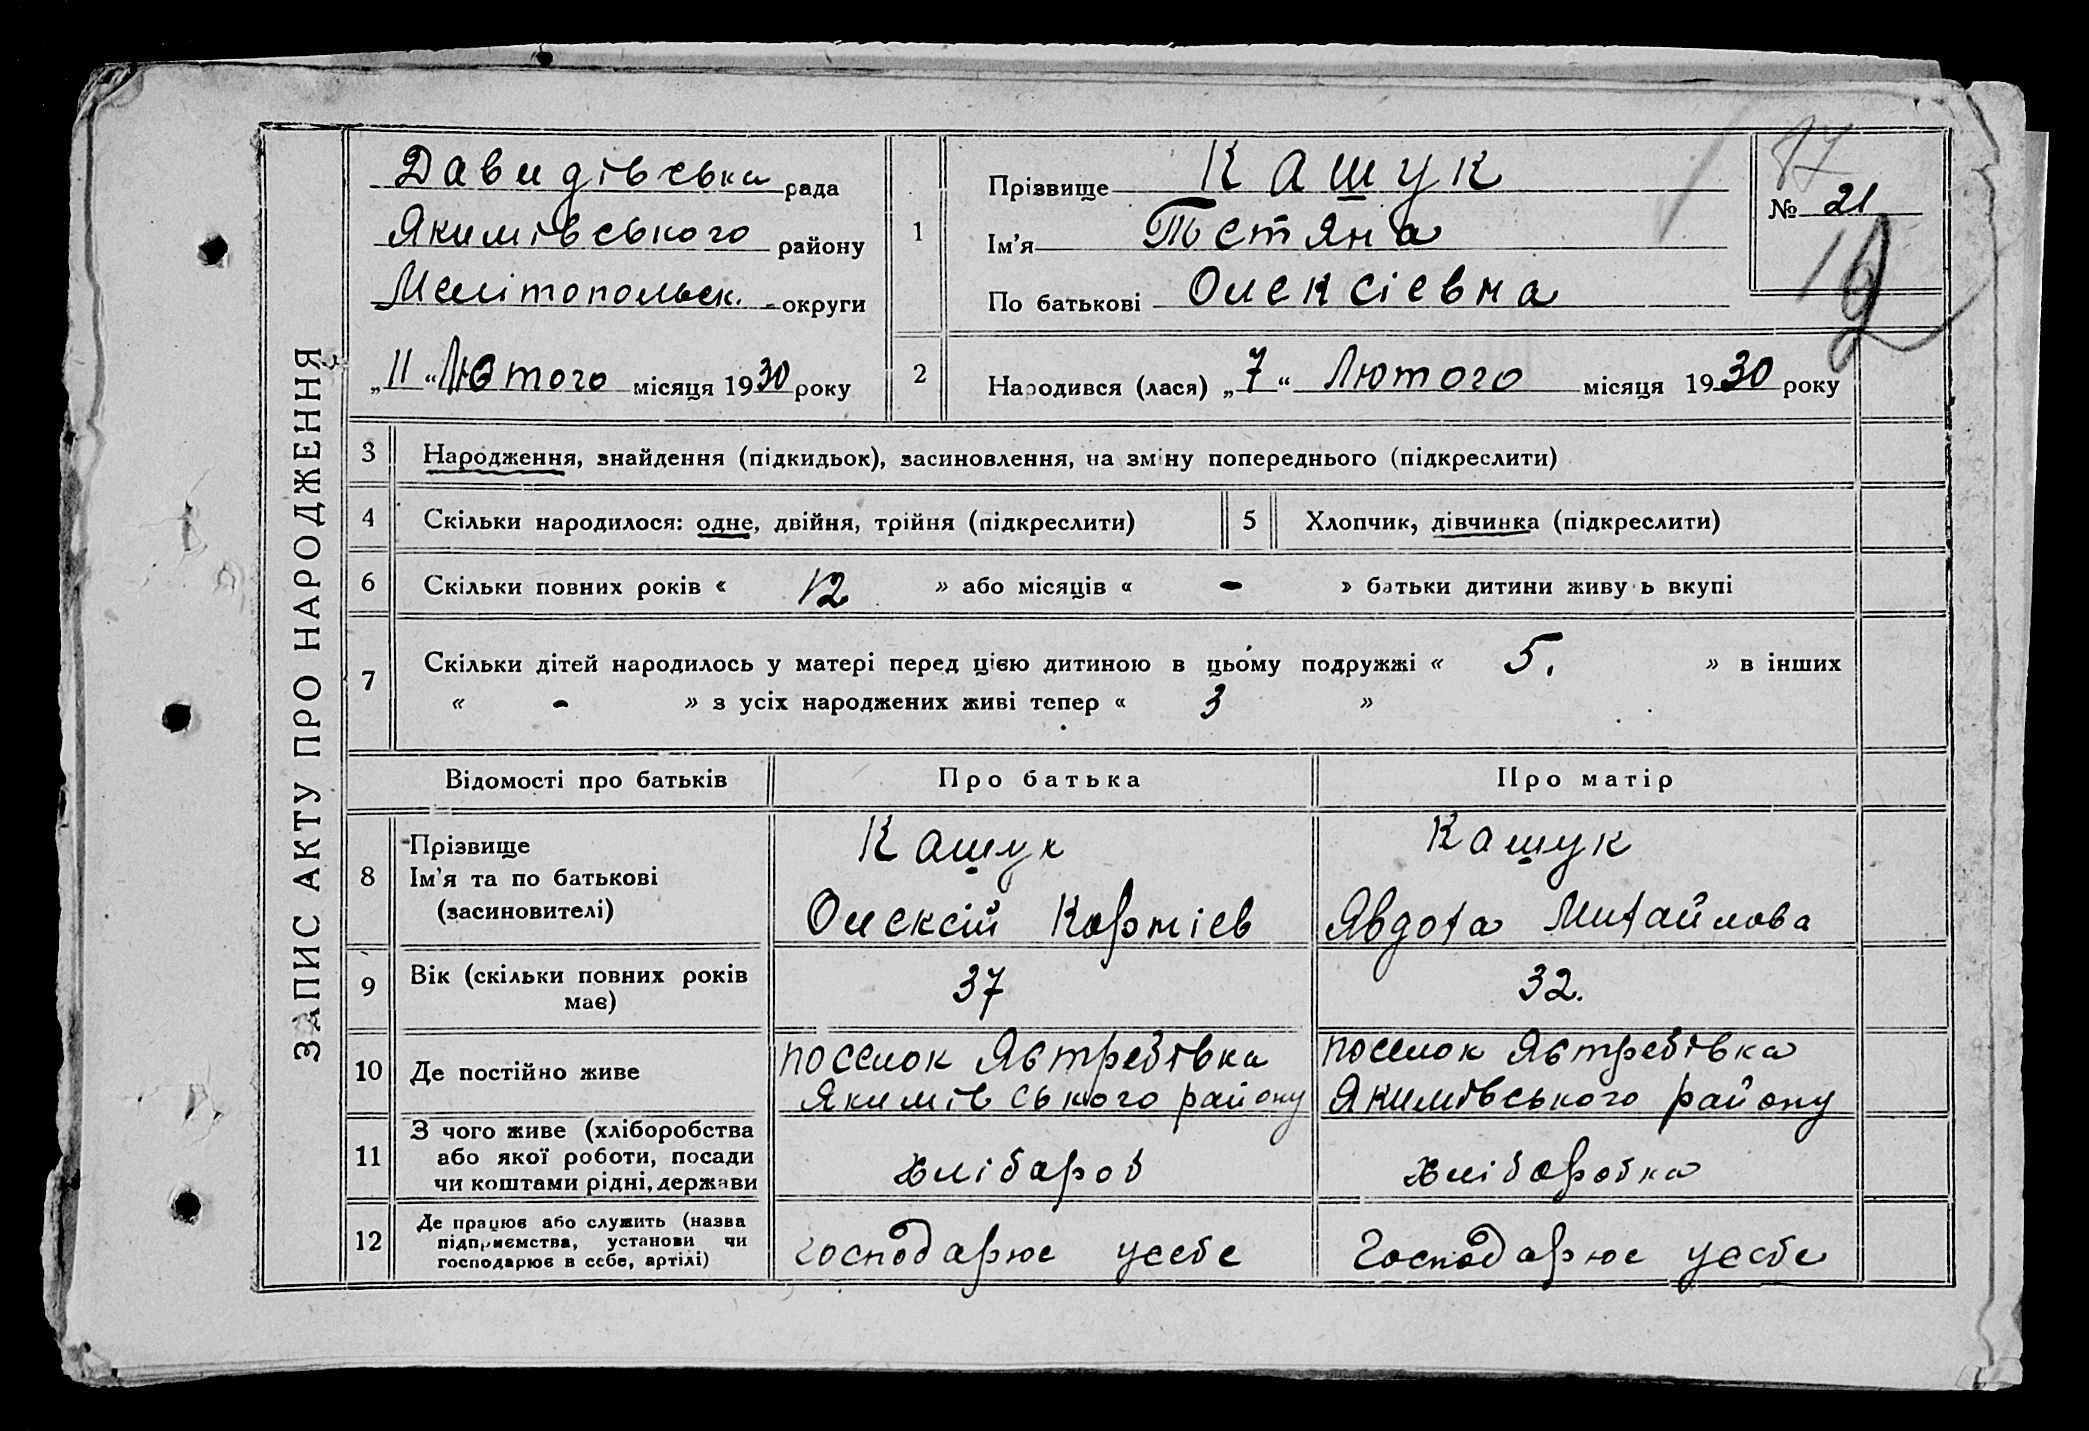 ЗАПИС АКТУ ПРО НАРОДЖЕННЯ
Давидівська рада
Якимівського району
Мелітопольськ. округи
„11“ Лютого місяця 1930 року
1
Прізвище Кашук
Ім'я Тетяна
По батькові Олексієвна
№ 21
2 Народився (лася) „7“ Лютого місяця 1930 року
3 Народження, знайдення (підкидьок), засиновлення, на зміну попереднього (підкреслити)
4 Скільки народилося: одне, двійня, трійня (підкреслити) 5 Хлопчик, дівчинка (підкреслити)
6 Скільки повних років « 12 » або місяців « - » батьки дитини живуть вкупі
7 Скільки дітей народилось у матері перед цією дитиною в цьому подружжі « 5. » в інших
« - » з усіх народжених живі тепер « 3 »
Відомості про батьків Про батька Про матір
8 Прізвище Кашук Кашук
Ім'я та по батькові
(засиновителі) Олексій Явдоха Михайлова
9 Вік (скільки повних років має) 37 32.
10 Де постійно живе
поселок Ястребівка поселок Ястребівка
Якимівського району Якимівського району
11 З чого живе (хліборобства
або якої роботи, посади
чи коштами рідні, держави
хлібароб хлібаробка
12 Де працює або служить (назва
підприємства, установи чи
господарює в себе, артілі)
господарює усебе господарює усебе